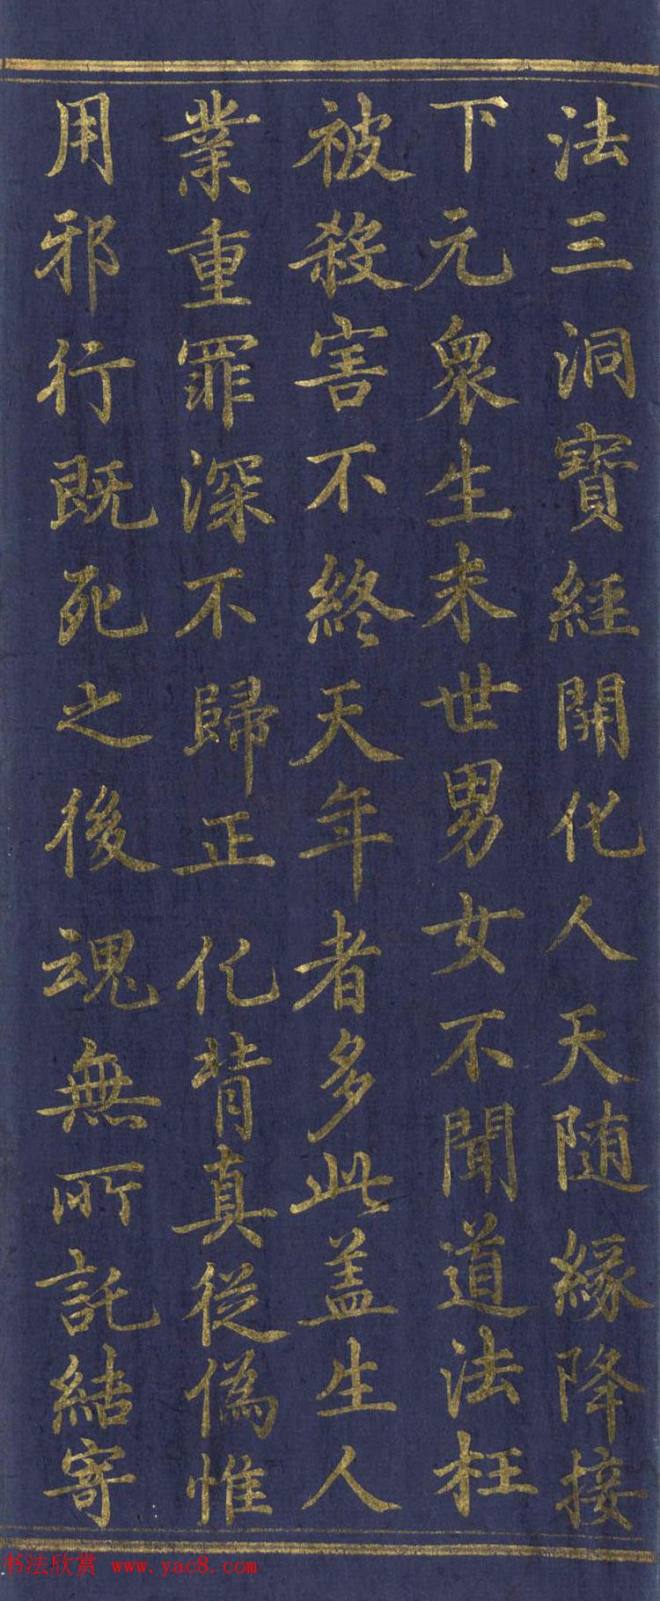 法三洞寶經開化人天随緣降接
下元衆生末世男女不聞道法枉
被殺害不終天年者多此盖生人
業重罪深不歸正化背真從僞惟
用邪行既死之後魂無所託結寄
书法欣赏 www.yac8.com